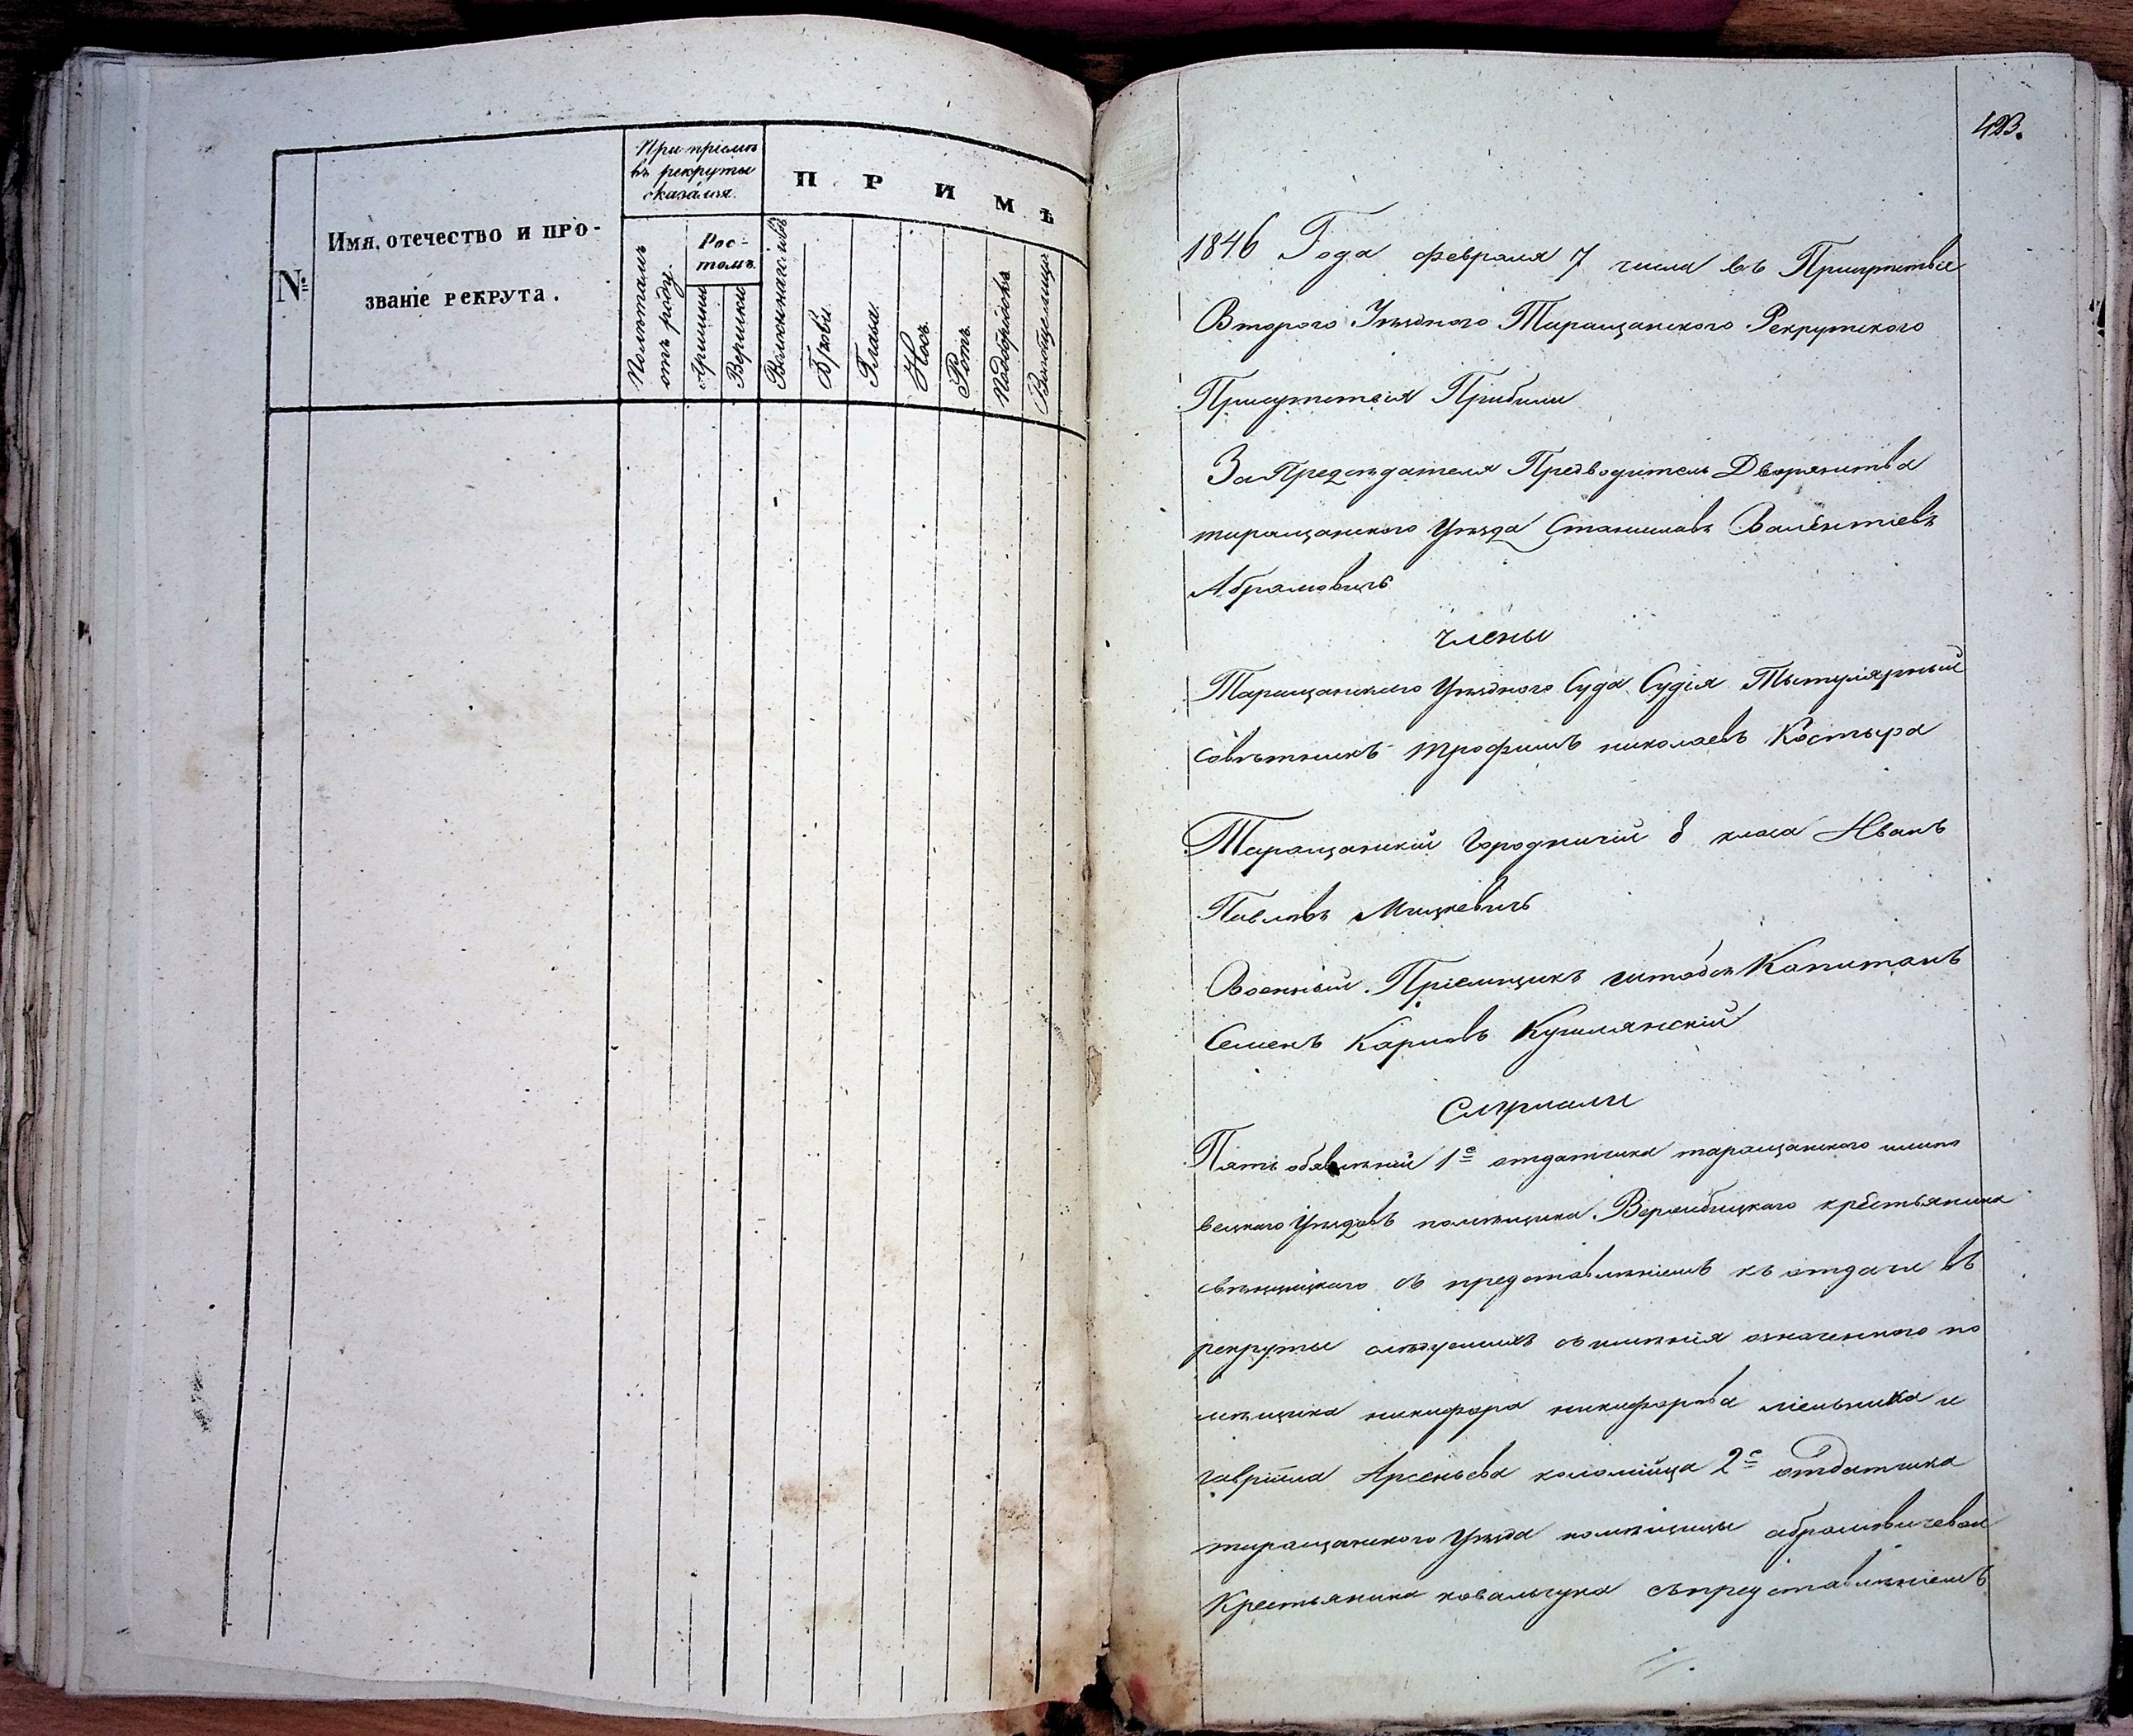 №
Имя, отечество и про-
званіе рекрута.
При пріемѣ
въ рекруты
оказался.
Полѣтамъ
отъ роду.
Рос-
томъ.
Аршины
Вершки
ПРИМѢ
Волосы на головѣ
Брови
Глаза.
Носъ.
Ротъ.
Подбородокъ
Вообще лице
423.
1846 Года февраля 7 числа въ Присутствіе
Второго Уѣзднаго Таращанского Рекрутского
Присутствія Прибыли
За Предсѣдателя Предводитель Дворянства
таращанского Уѣзда Станиславъ Валентіевъ
Абрамовичъ
члены
Таращанского Уѣздного Суда Судія Тытулярный
совѣтникъ трофимъ николаевъ Костыра
Таращанскій Городничій 8 класа Иванъ
Павловъ Мицкевичъ
Военный Пріемщикъ штабсъ Капитанъ
Семенъ Карповъ
Слушали
Пять обявленій 1е отдатчика таращанского
Уѣздовъ помѣщика крестьянина
съ представленіемъ къ отдаче въ
рекруты слѣдуемихъ съ имѣнія означенного по
мѣщика никифора никифорова мельника и
гавріила Арсеньева коломійца 2е отдатчика
таращанского Уѣзда помѣщицы абрамовичевой
Крестьянина ковальчука съ представленіемъ